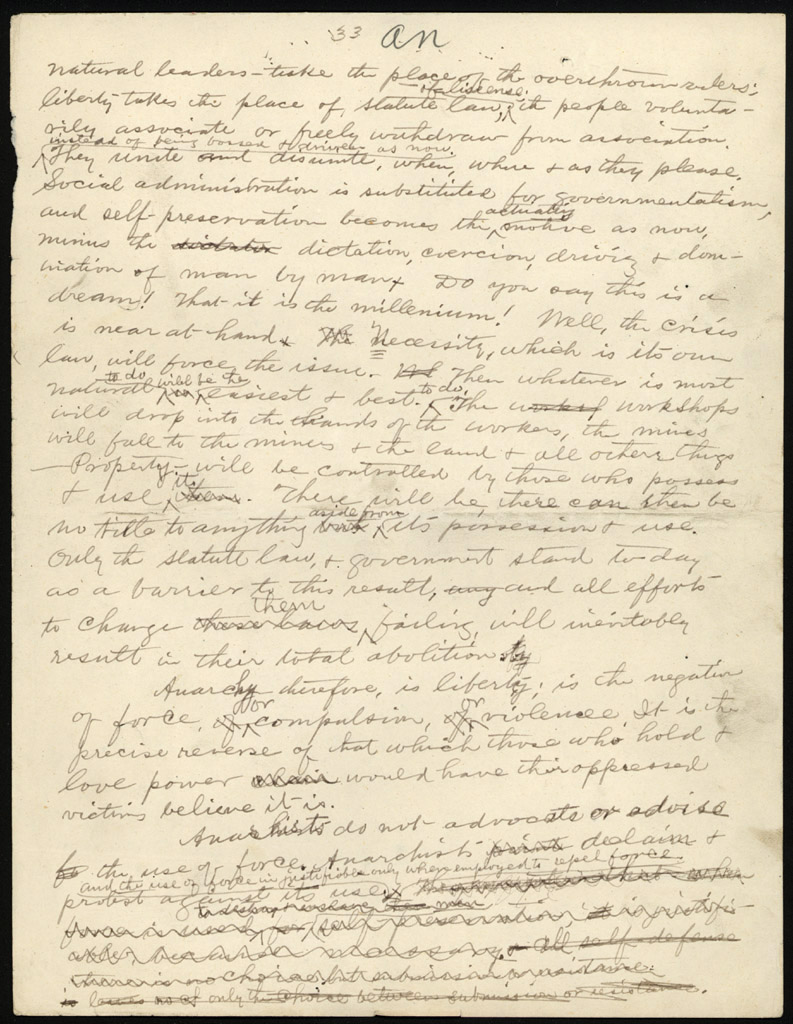 33 an
natural leaders - take the place of the overthrown rulers;
of a license.
liberty takes the place of, statute law, the people volunta-
rily associate or freely withdraw from association.
instead of being bossed & driven as now.
They unite and disunite, when, where & as they please.
Social administration is substituted for governmentalism,
actually
and self-preservation becomes the motive as now,
minus the dictation, coercion, driving & dom-
ination of man by man. Do you say this is a
dream! That it is the millenium! Well, the crisis
is near at hand. The Necessity, which is its own
law, will force the issue. Then whatever is most
to do will be the to do.
natural is easiest & best. The works of workshops
will drop into the hands of the workers, the mines
will fall to the miners & the land & all other things
- Property - will be controlled by those who possess
it.
& use them. There will be, there can then be
aside from
no title to anything but its possession & use.
Only the statute law, & government stand to-day
as a barrier to this result, any and all efforts
them
to change these laws failing, will inevitably
result in their total abolition
Anarchy therefore, is liberty; is the negation
or or
of force, of compulsion, of violence. It is the
precise reverse of that which those who hold &
love power would have their oppressed
victims believe it is.
Anarchists do not advocate or advise
the use of force. Anarchists declaim &
and the use of force is justifiable only when employed to repel force.
protest against its use.
self preservation is justifi-
able, because necessary. all self defense
there is no choice but submission or resistance.
is not only the choice between submission or resistance.